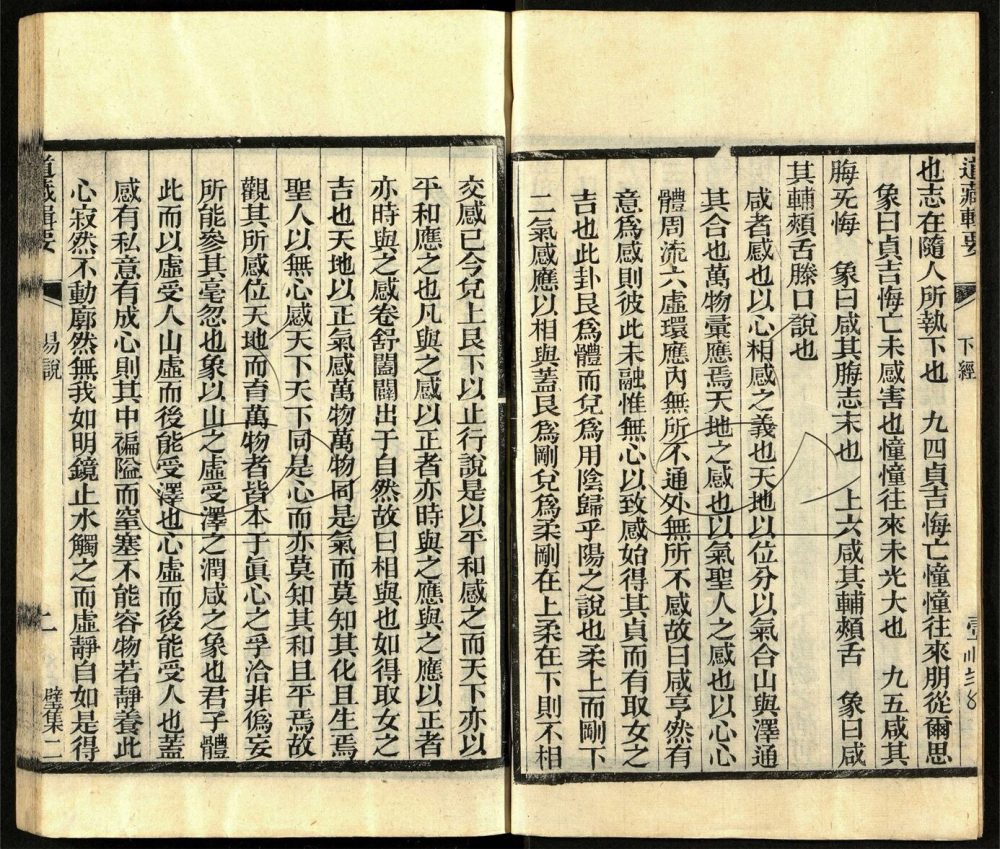 道藏輯要 下經
也志在隨人所執下也 九四貞吉悔亡憧憧往來朋從爾思
象曰貞吉悔亡未感害也憧憧往來未光大也 九五咸其
脢无悔 象曰咸其脢志末也 上六咸其輔頰舌 象曰咸
其輔頰舌滕口說也
咸者感也以心相感之義也天地以位分以氣合山與澤通
其合也萬物彙應焉天地之感也以氣聖人之感也以心心
體周流六虛環應內無所不通外無所不感故曰咸亨然有
意爲感則彼此未融惟無心以致感始得其貞而有取女之
吉也此卦艮爲體而兌爲用陰歸乎陽之說也柔上而剛下
二氣感應以相與蓋艮爲剛兌爲柔剛在上柔在下則不相
交感已今兌上艮下以止行說是以平和感之而天下亦以
平和應之也凡與之感以正者亦時與之應與之應以正者
亦時與之感卷舒闔闢出于自然故曰相與也如得取女之
吉也天地以正氣感萬物萬物同是氣而莫知其化且生焉
聖人以無心感天下天下同是心而亦莫知其和且平焉故
觀其所感位天地而育萬物者皆本于眞心之孚洽非僞妄
所能參其毫忽也象以山之虛受澤之潤咸之象也君子體
此而以虛受人山虛而後能受澤也心虛而後能受人也蓋
感有私意有成心則其中褊隘而窒塞不能容物若靜養此
心寂然不動廓然無我如明鏡止水觸之而虛靜自如是得
道藏輯要 易說 二 壁集二